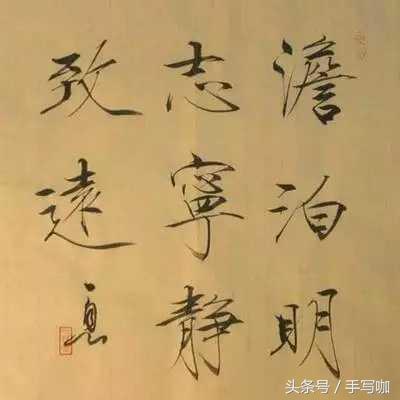 澹泊明
志寧靜
致遠
头条号／手写咖